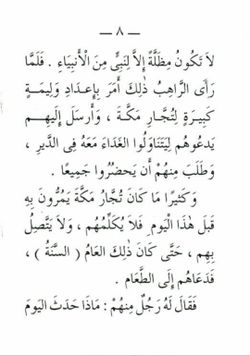 — ٨ —
لاَ تَكُونُ مِظَلَّةً إِلاَّ لِنَبِيٍّ مِنَ الْأَنبِيَاءِ . فَلَمَّا
رَأَى الرَّاهِبُ ذٰلِكَ أَمَرَ بِإِعدَادِ وَلِيمَةٍ
كَبِيرَةٍ لِتُجَّارِ مَكَّةَ ، وَأَرسَلَ إِلَيهِم
يَدعُوهُم لِيَتَنَاوَلُوا الغَدَاءَ مَعَهُ فِى الدَّيرِ ،
وَطَلَبَ مِنهُمْ أَن يَحضُرُوا جَمِيعًا .
وَكَثِيرًا مَا كَانَ تُجَّارُ مَكَّةَ يَمُرُّونَ بِهِ
قَبلَ هٰذَا اليَومِ فَلاَ يُكَلِّمُهُم ، وَلاَ يَتَّصِلُ
بِهِم ، حَتَّى كَانَ ذٰلِكَ العَامُ ( السَّنَةُ ) ،
فَدَعَاهُم إِلَى الطَّعَامِ .
فَقَالَ لَهُ رَجُلٌ مِنهُمْ : مَاذَا حَدَثَ اليَومَ